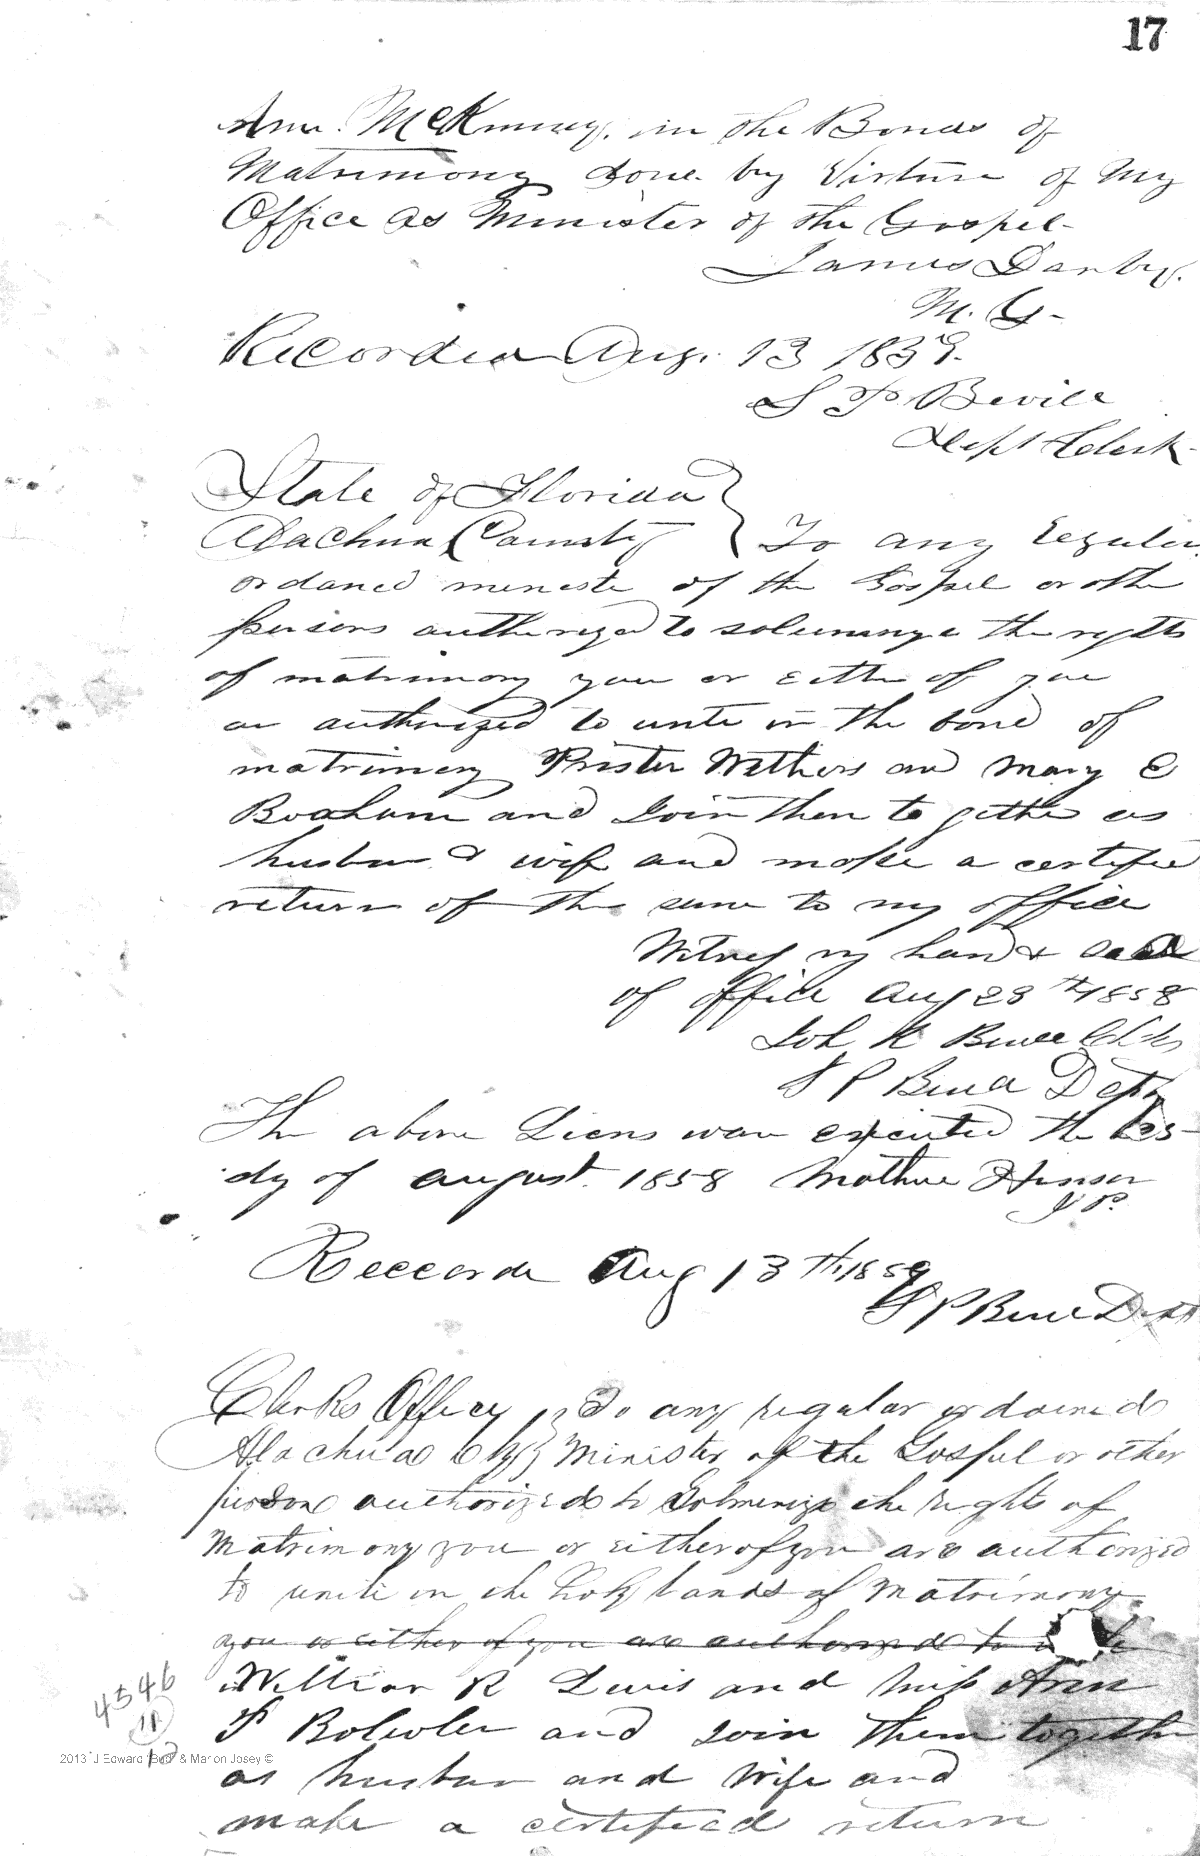 17
Ann. McKinney. in the Bonds of
Matrimony done by Virture of My
Office as Minister of the Gospel-
James Danby.
M. G-
Recorded Aug. 13 1859.
S P Bevill
Dept Clerk-
State of Florida }
Alachua County } To any regular
ordaned meneste of the Gospel or othe
persons autherized to solemnize the rights
of matrimony you or eithe of you
ar authorized to unite in the bond of
matrimony Prister Withers and Mary E
and Join them to gether as
husban & wife and make a certified
return of the same to my office
Witness my hand & seal
of office Aug 28th 1858
K Bevill Clk
S P Bevill Dept
The above Licens was executed the
dy of august. 1858 Mathew Hinson
J P.
Reccorde Aug 13th 1859
S P Bevill Dept
Clerks Office } To any regular ordained
Alachua Cty } Minister of the Gospel or other
person authorized to Solmenize the rights of
Matrimony you or either of you are authorized
to unite in the holy bands of Matrimony
you or either of you are authorized to
William R Lewis and Miss Ann
P and Join them together
as husban and Wife and
make a certified return
4546
2013 J Edward "Bud" & Marion Josey ©